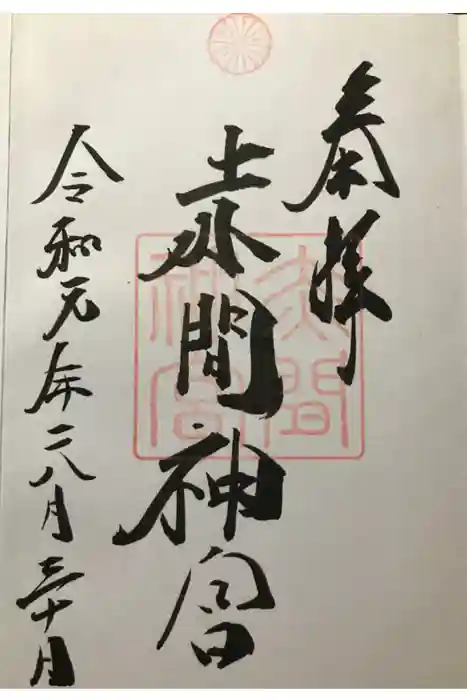 奉拝
赤間神宮
令和元年八月三十日
赤間
神宮